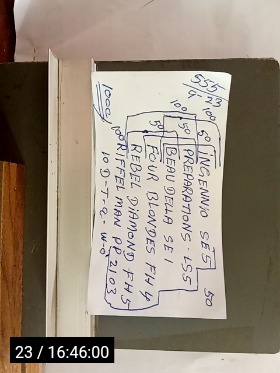 555
9/23
INGENNIO SE5 50
PREPARATIONS. LS5
BEAUDELLA SE 1
FOUR BLONDES FH 4
REBEL DIAMOND FH5
RIFFEL MAN PP 2103
10 D-T-2-W-0
1000
100
50
100
50
100
23 / 16:46:00